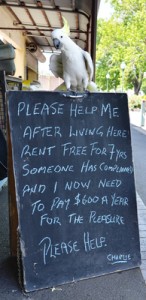 PLEASE HELP ME
AFTER LIVING HERE
RENT FREE FOR 7 YRS
SOMEONE HAS COMPLAINED
AND I NOW NEED
TO PAY $600 A YEAR
FOR THE PLEASURE
PLEASE HELP.
CHARLIE